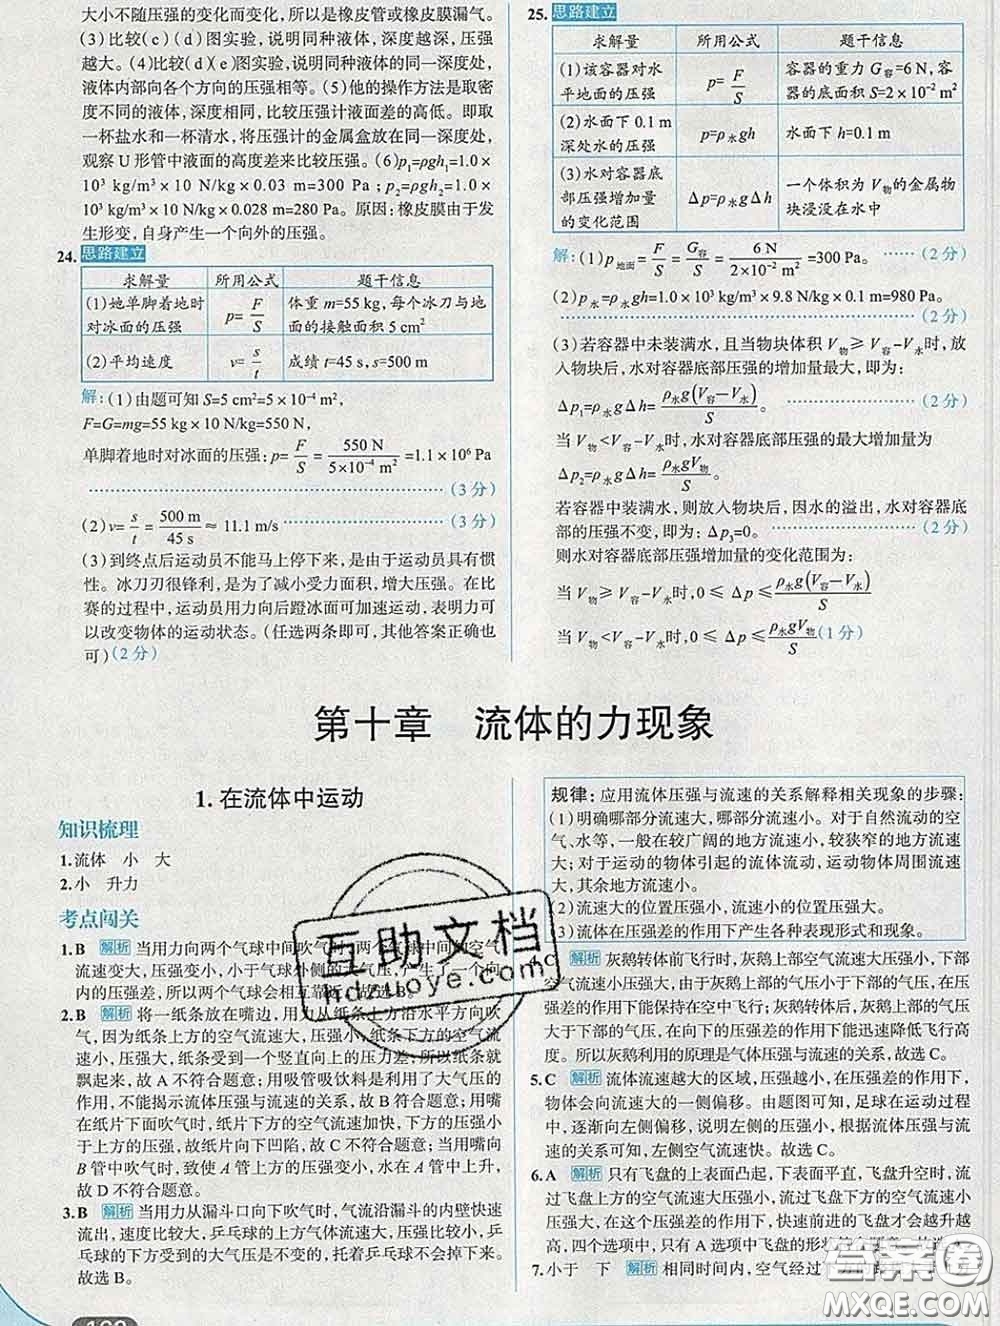 大小不随压强的变化而变化,所以是橡皮管或橡皮膜漏气。
(3)比较(c)(d)图实验,说明同种液体,深度越深,压强
越大。(4)比较(d)(e)图实验,说明同种液体的同一深度处,
液体内部向各个方向的压强相等。(5)他的操作方法是取密
度不同的液体,深度相同,比较压强计液面差的高低。即取
一杯盐水和一杯清水,将压强计的金属盒放在同一深度处,
观察 U 形管中液面的高度差来比较压强。(6)p₁=ρgh₁=1.0×
10³ kg/m³×10 N/kg×0.03 m=300 Pa;p₂=ρgh₂=1.0×
10³ kg/m³×10 N/kg×0.028 m=280 Pa。原因:橡皮膜由于发
生形变,自身产生一个向外的压强。
24. 思路建立
求解量 所用公式 题干信息
(1)她单脚着地时对冰面的压强 p=F/S 体重 m=55 kg,每个冰刀与地面的接触面积 5 cm²
(2)平均速度 v=s/t 成绩 t=45 s,s=500 m
解:(1)由题可知 S=5 cm²=5×10⁻⁴ m²,
F=G=mg=55 kg×10 N/kg=550 N,
单脚着地时对冰面的压强:p=F/S=550 N/5×10⁻⁴ m²=1.1×10⁶ Pa
(3分)
(2)v=s/t=500 m/45 s≈11.1 m/s (3分)
(3)到终点后运动员不能马上停下来,是由于运动员具有惯
性。冰刀刃很锋利,是为了减小受力面积,增大压强。在比
赛的过程中,运动员用力向后蹬冰面可加速运动,表明力可
以改变物体的运动状态。(任选两条即可,其他答案正确也
可)(2分)
25. 思路建立
求解量 所用公式 题干信息
(1)该容器对水平地面的压强 p=F/S 容器的重力 G容=6 N,容器的底面积 S=2×10⁻² m²
(2)水面下 0.1 m 深处水的压强 p=ρ水gh 水面下 h=0.1 m
(3)水对容器底部压强增加量的变化范围 Δp=ρ水gΔh 一个体积为 V物的金属物块浸没在水中
解:(1)p地面=F/S=G容/S=6 N/2×10⁻² m²=300 Pa。 (2分)
(2)p水=ρ水gh=1.0×10³ kg/m³×9.8 N/kg×0.1 m=980 Pa。
(2分)
(3)若容器中未装满水,且当物块体积 V物≥V容−V水时,放
入物块后,水对容器底部压强的增加量最大,即为:
Δp₁=ρ水gΔh=ρ水g(V容−V水)/S。 (2分)
当 V物<V容−V水时,水对容器底部压强的最大增加量为
Δp₂=ρ水gΔh=ρ水gV物/S。
若容器中装满水,则放入物块后,因水的溢出,水对容器底
部的压强不变,即为:Δp₃=0。 (2分)
则水对容器底部压强增加量的变化范围为:
当 V物≥V容−V水时,0≤Δp≤ρ水g(V容−V水)/S
当 V物<V容−V水时,0≤Δp≤ρ水gV物/S(1分)
第十章 流体的力现象
1. 在流体中运动
知识梳理
1.流体 小 大
2.小 升力
考点闯关
1.B 解析 当用力向两个气球中间吹气时,两个气球中间的空气
流速变大,压强变小,小于气球外侧的大气压,产生了一个向
内的压强差,所以两个气球会相互靠近。故选 B。
2.B 解析 将一纸条放在嘴边,用力从纸条上方沿水平方向吹
气,因为纸条上方的空气流速大,压强小,纸条下方的空气流
速小,压强大,纸条受到一个竖直向上的压力差,所以纸条就
飘起来,故 A 不符合题意;用吸管吸饮料是利用了大气压的
作用,不能揭示流体压强与流速的关系,故 B 符合题意;用嘴
在纸片下面吹气时,纸片下方的空气流速加快,下方的压强小
于上方的压强,故纸片向下凹陷,故 C 不符合题意;当用嘴向
B 管中吹气时,致使 A 管上方压强变小,水在 A 管中上升,
故 D 不符合题意。
3.B 解析 当用力从漏斗口向下吹气时,气流沿漏斗的内壁快速
流出,速度比较大,乒乓球的上方气体流速大,压强比较小,乒
乓球的下方受到的大气压是不变的,托着乒乓球不会掉下来。
故选 B。
规律:应用流体压强与流速的关系解释相关现象的步骤:
(1)明确哪部分流速大,哪部分流速小。对于自然流动的空
气、水等,一般在较广阔的地方流速小,较狭窄的地方流速
大;对于运动的物体引起的流体流动,运动物体周围流速
大,其余地方流速小。
(2)流速大的位置压强小,流速小的位置压强大。
(3)流体在压强差的作用下产生各种表现形式和现象。
4.C 解析 灰鹅转体前飞行时,灰鹅上部空气流速大压强小,下部
空气流速小压强大,由于灰鹅上部的气压小于下部的气压,在压
强差的作用下能保持在空中飞行;灰鹅转体后,灰鹅上部的气压
大于下部的气压,在向下的压强差的作用下能迅速降低飞行高
度。所以灰鹅利用的原理是气体压强与流速的关系,故选 C。
5.C 解析 流体流速越大的区域,压强越小,在压强差的作用下,
物体会向流速大的一侧偏移。由题图可知,足球在运动过程
中,逐渐向左侧偏移,说明左侧的压强小,根据流体压强与流
速的关系可知,左侧空气流速快。故选 C。
6.A 解析 只有飞盘的上表面凸起,下表面平直,飞盘升空时,流
过飞盘上方的空气流速大压强小,流过飞盘下方的空气流速
小压强大,在这个压强差的作用下,快速前进的飞盘才会越升越
高,四个选项中,只有 A 选项中飞盘的形状符合题意。故选 A。
7.小于 下 解析 相同时间内,空气经过下方
互助文档
hdzuoye.com
答案圈
MXQE.COM